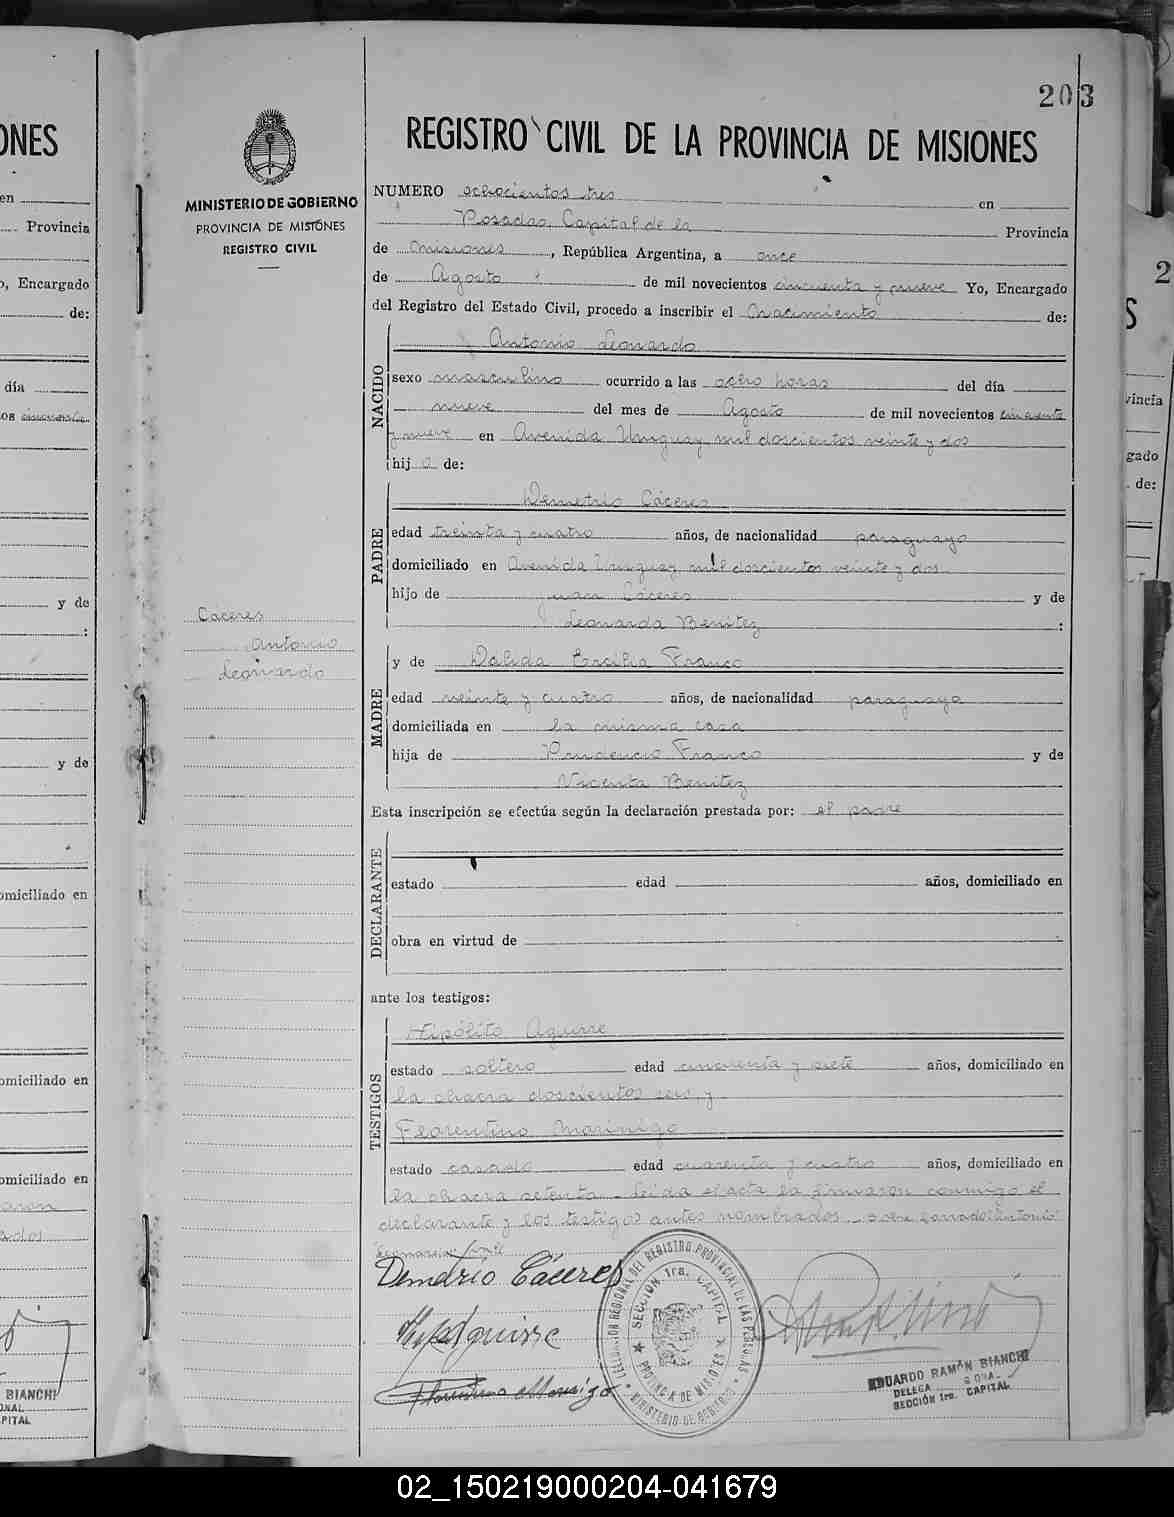 203
REGISTRO CIVIL DE LA PROVINCIA DE MISIONES
MINISTERIO DE GOBIERNO
PROVINCIA DE MISIONES
REGISTRO CIVIL
NUMERO ochocientos tres en
Posadas, Capital de la Provincia
de Misiones, República Argentina, a once
de Agosto de mil novecientos cincuenta y nueve Yo, Encargado
del Registro del Estado Civil, procedo a inscribir el Nacimiento de:
NACIDO
Antonio Leonardo
sexo masculino ocurrido a las ocho horas del día
nueve del mes de Agosto de mil novecientos cincuenta
y nueve en Avenida Uruguay mil doscientos veinte y dos
hijo de:
PADRE
Demetrio Cáceres
edad treinta y cuatro años, de nacionalidad paraguayo
domiciliado en Avenida Uruguay mil doscientos veinte y dos
hijo de Juan Cáceres y de
Leonarda Benítez :
Cáceres
Antonio
Leonardo
MADRE
y de Dalida Ercilia Franco
edad veinte y cuatro años, de nacionalidad paraguaya
domiciliada en la misma casa
hija de Prudencio Franco y de
Vicenta Benítez
Esta inscripción se efectúa según la declaración prestada por: el padre
DECLARANTE
estado edad años, domiciliado en
obra en virtud de
ante los testigos:
TESTIGOS
Hipólito Aguirre
estado soltero edad cincuenta y siete años, domiciliado en
la chacra doscientos seis, y
Florentino Marinigo
estado casado edad cuarenta y cuatro años, domiciliado en
la chacra setenta. Leída el acta la firmaron conmigo el
declarante y los testigos antes nombrados. Sobre borrado: Antonio
Leonardo: vale
Demetrio Cáceres
Hip Aguirre
Florentino Marinigo
DELEGACION REGIONAL DEL REGISTRO PROVINCIAL DE LAS PERSONAS
MINISTERIO DE GOBIERNO
SECCIÓN 1ra. CAPITAL
PROVINCIA DE MISIONES
EDUARDO RAMÓN BIANCHI
SECCIÓN 1ra. CAPITAL
ONES
en
Provincia
o, Encargado
de:
día
os cincuenta
y de
:
y de
omiciliado en
omiciliado en
omiciliado en
BIANCHI
ONAL
PITAL
2
S
vincia
gado
de:
02_150219000204-041679